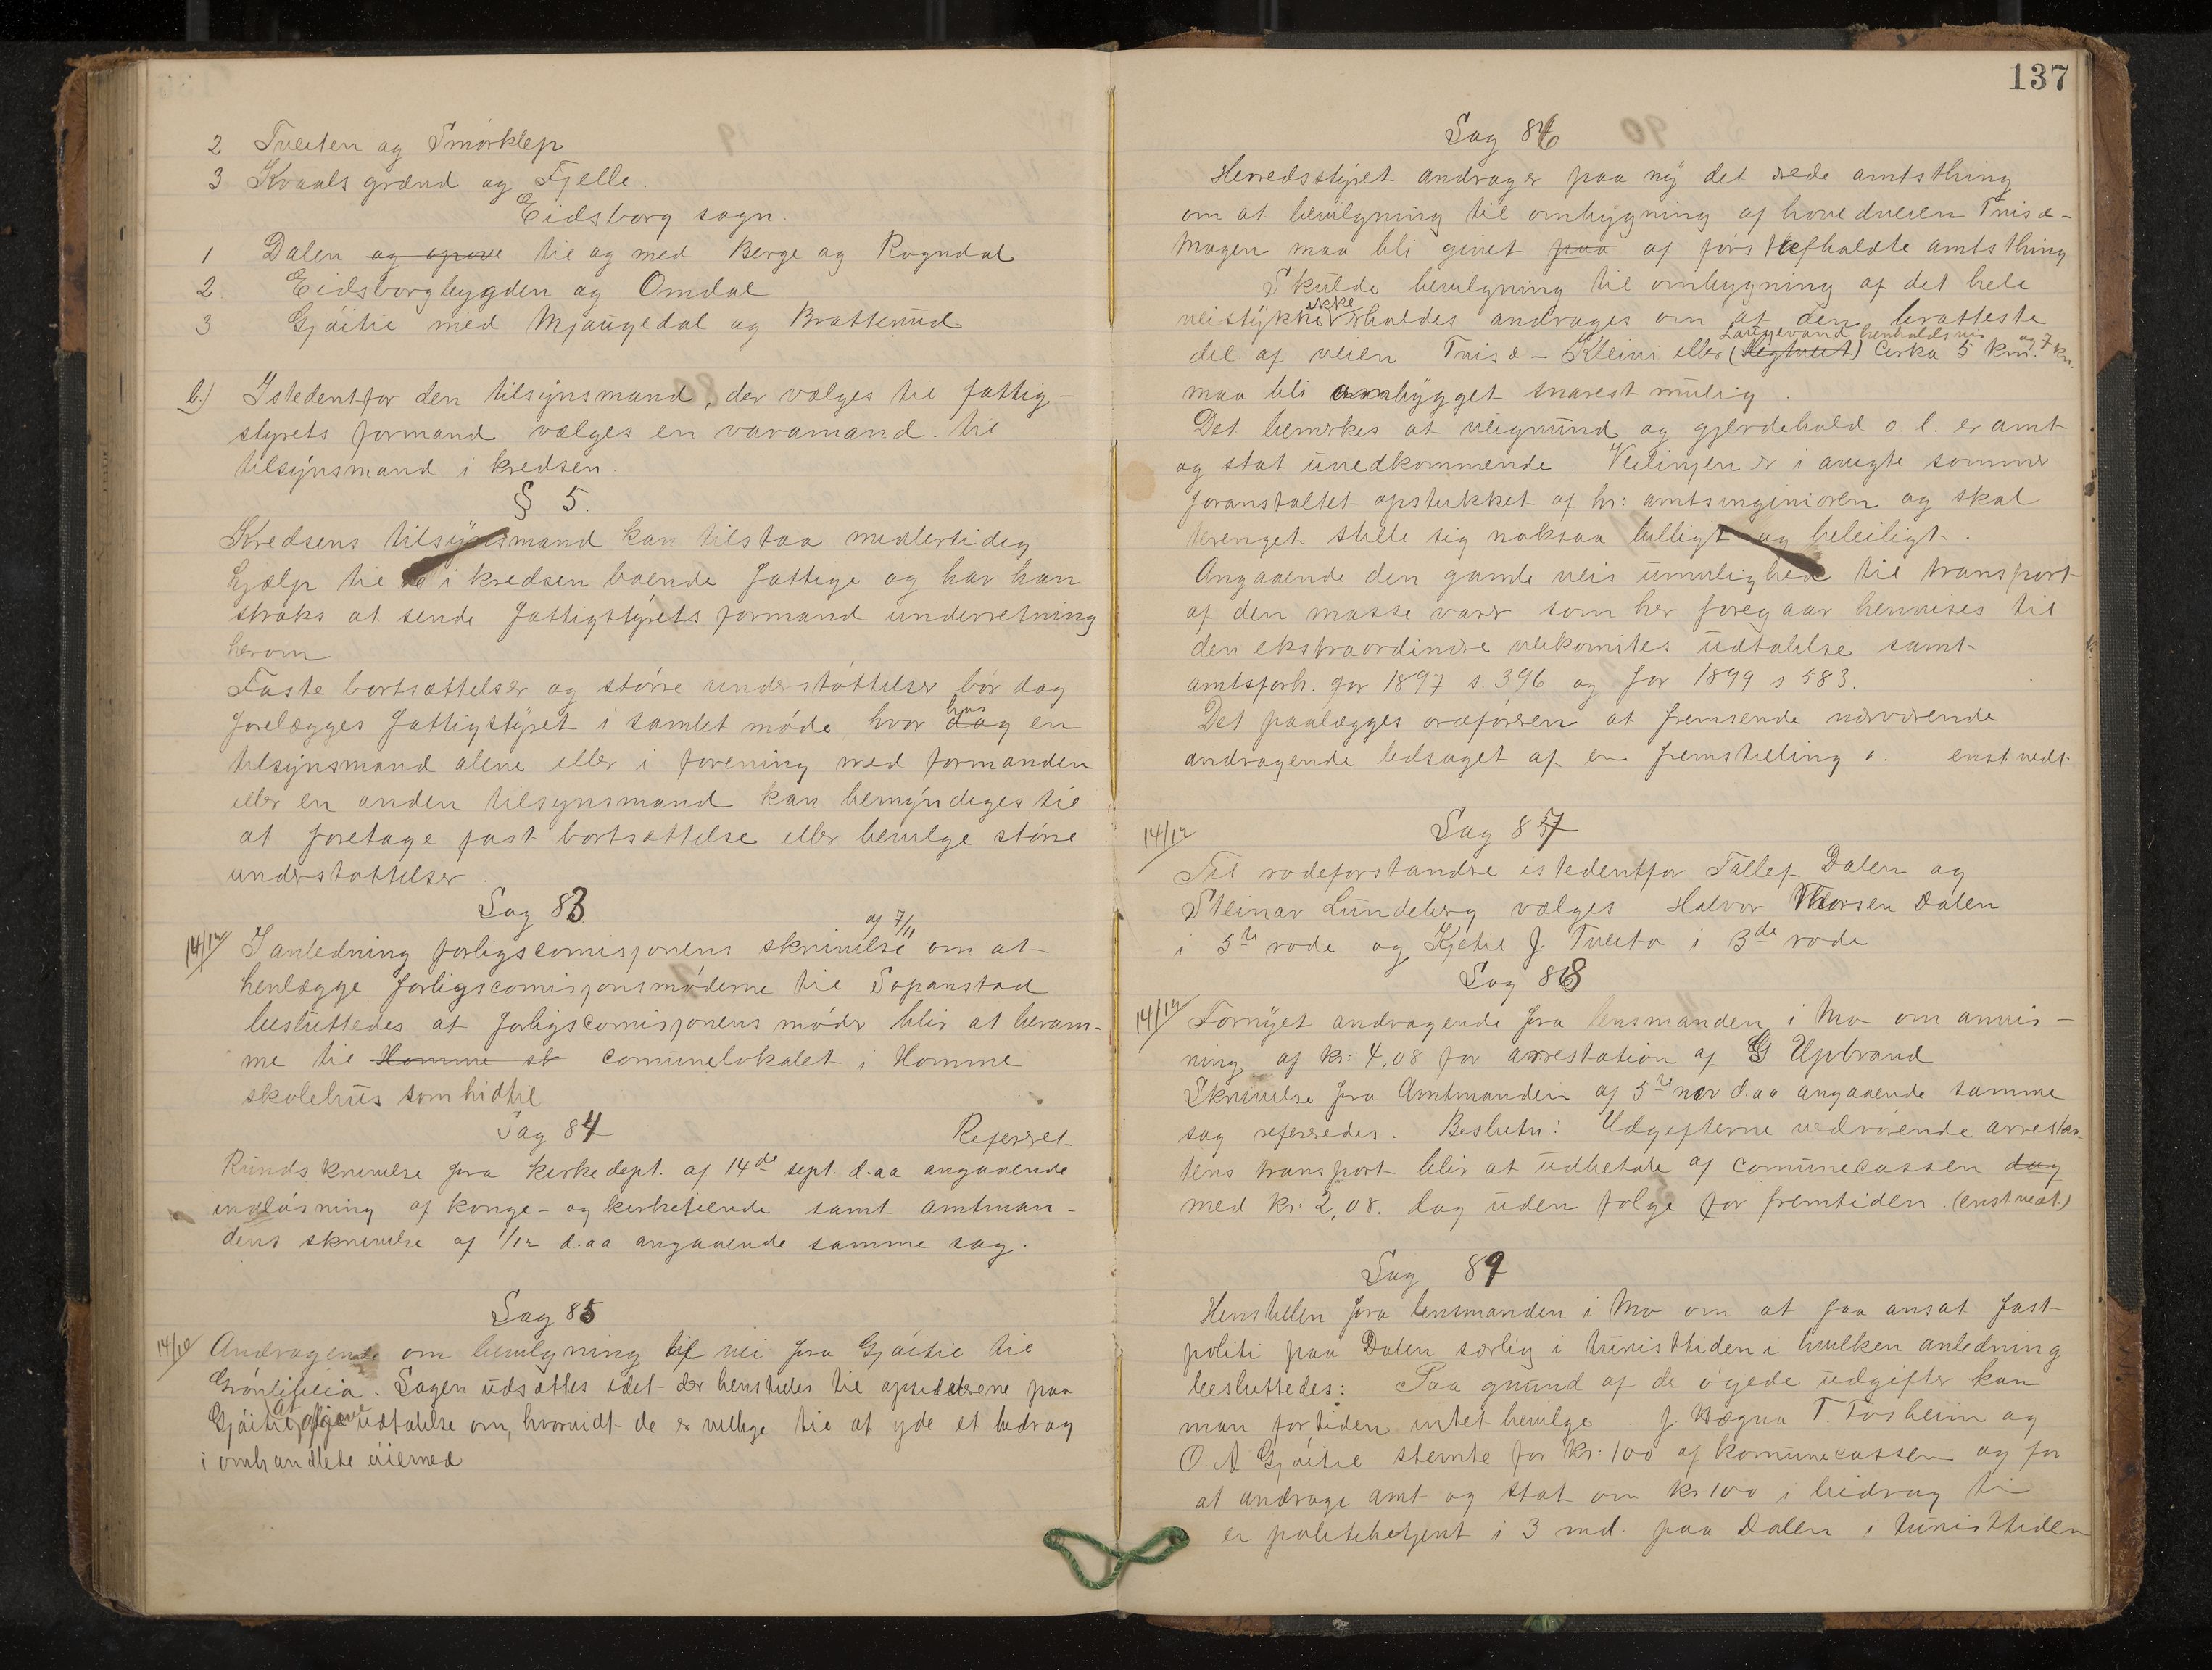 2 Tveiten og Smørklep
3 Kvaalsgrænd og Fjelle.
Eidsborg sogn.
1 Dalen til og med Berge og Rogndal
2 Eidsborgbygden og Omdal
3 Gjøitil med Mjaugedal og Brattenud
b.) Istedentfor den tilsynsmand, der vælges til fattig-
styrets formand vælges en varamand til
tilsynsmand i kredsen.
§ 5.
Kredsens tilsynsmand kan tilstaa midlertidig
hjælp til i kredsen boende fattige og har han
straks at sende fattigstyrets formand underretning
herom
Faste bortsættelser og større understøttelser bør dog
forelægges fattigstyret i samlet møde, hvor en
tilsynsmand alene eller i forening med formanden
eller en anden tilsynsmand kan bemyndiges til
at foretage fast bortsættelse eller bevilge større
understøttelser.
Sag 83
14/12 I anledning forligscomisjonens skrivelse af 7/11 om at
henlægge forligscomisjonsmøderne til
besluttedes at forligscomisjonens møder blir at beram-
me til Homme comunelokalet i Homme
skolehus som hidtil
Sag 84 Referret
Rundskrivelse fra kirkedept. af 14de sept. d.aa angaaende
indløsning af konge- og kirketiende samt amtman-
dens skrivelse af 1/12 d.aa angaaende samme sag.
Sag 85
14/12 Andragende om bevilgning til vei fra Gjøitil til
Sagen udsættes idet der henstilles til opsidderene paa
Gjøitil at afgive udtalelse om, hvorvidt de er villige til at yde et bidrag
i omhandlede øiemed
137
Sag 86
Herredsstyret andrager paa ny det ærede amtsthing
om at bevilgning til ombygning af hovedveien Tvisæ-
Mogen maa bli givet paa af først afholdte amtsthing
Skulde bevilgning til ombygning af det hele
veistykke ikke erholdes andrages om at den bratteste
del af veien Tvisæ - Kleivi eller Laugevand henholdsvis cirka 5 km. og 7 km.
maa bli ombygget snarest mulig.
Det bemerkes at veigrund og gjerdehold o. l. er amt
og stat uvedkommende. Veilinjen er i avigte sommer
foranstaltet opstukket af hr: amtsingeniøren og skal
terenget stille sig noksaa billigt og beleiligt.
Angaaende den gamle veis umulighed til transport
af den masse varer som her foregaar henvises til
den ekstraordinære veikomites udtalelse samt
amtsforh. for 1897 s. 396 og for 1899 s 583.
Det paalægges ordføreren at fremsende nærværende
andragende ledsaget af en fremstilling. enst vedt.
14/12 Sag 87
Til rodeforstandere istedentfor Tallef Dalen og
Steinar Lundeberg vælges Halvor Thorsen Dalen
i 5te rode og Kjetil J. Tveito i 3de rode
Sag 88
14/12 Fornyet andragende fra lensmanden i Mo om anvis-
ning af kr: 4,08 for arrestation af G Upbrand
Skrivelse fra Amtmanden af 5te nov d.aa angaaende samme
sag referredes. Beslutn: Udgifterne vedrørende arrestan-
tens transport blir at udbetale af comunecassen dog
med kr. 2,08. dog uden følge for fremtiden. (enst vedt)
Sag 89
Henstillen fra lensmanden i Mo om at faa ansat fast
politi paa Dalen særlig i turisttiden i hvilken anledning
besluttedes: Paa grund af de øgede udgifter kan
man fortiden intet bevilge. J. Hægna T. Fosheim og
O. A Gjøitil stemte for kr: 100 af komunecassen og for
at andrage amt og stat om kr 100 i bidrag til
en politibetjent i 3 md. paa Dalen i turisttiden